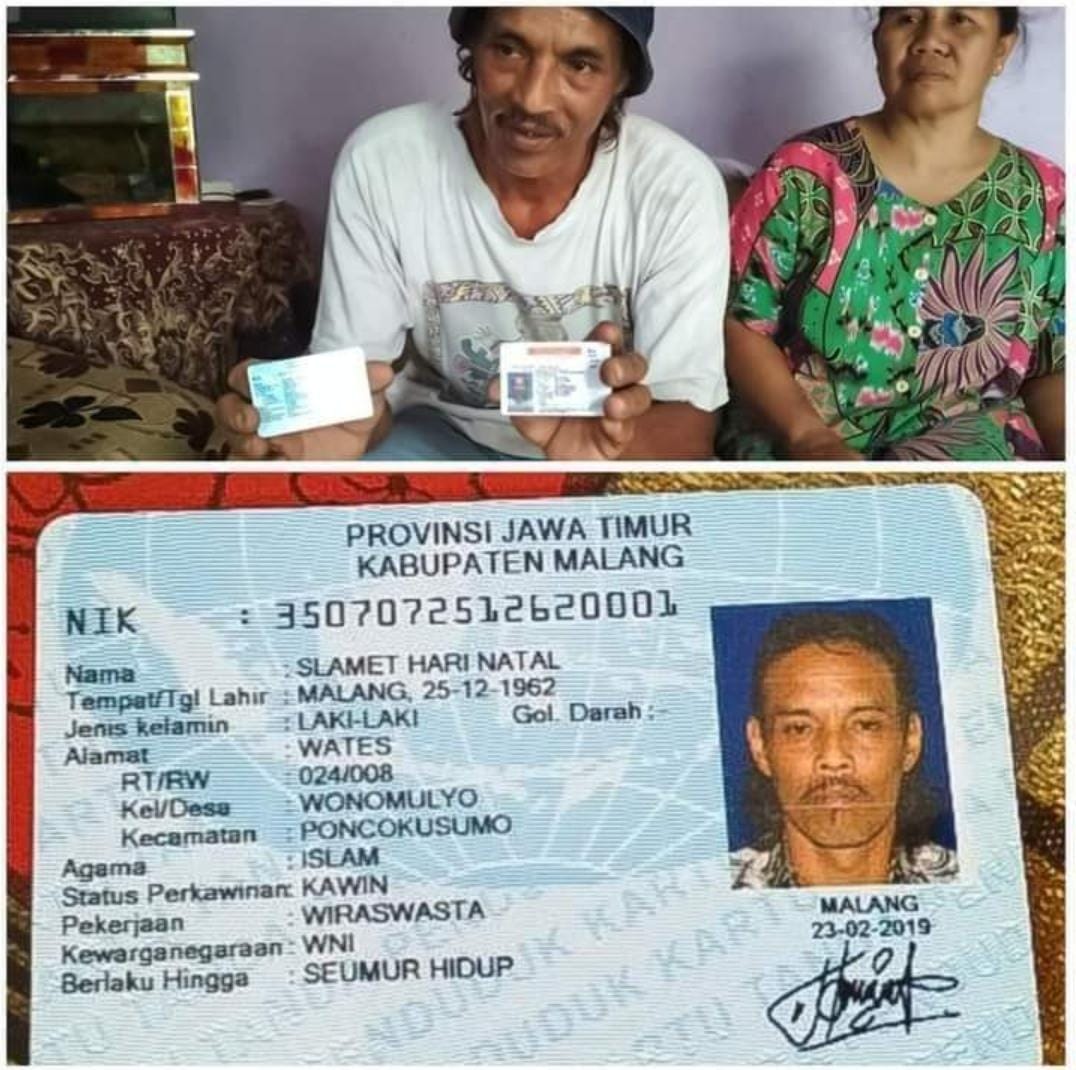 PROVINSI JAWA TIMUR
KABUPATEN MALANG
NIK : 3507072512620001
Nama : SLAMET HARI NATAL
Tempat/Tgl Lahir : MALANG, 25-12-1962
Jenis kelamin : LAKI-LAKI Gol. Darah : -
Alamat : WATES
RT/RW : 024/008
Kel/Desa : WONOMULYO
Kecamatan : PONCOKUSUMO
Agama : ISLAM
Status Perkawinan: KAWIN
Pekerjaan : WIRASWASTA
Kewarganegaraan : WNI
Berlaku Hingga : SEUMUR HIDUP
MALANG
23-02-2019